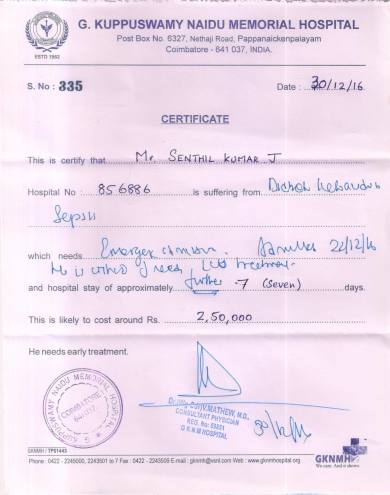 G. KUPPUSWAMY NAIDU MEMORIAL HOSPITAL
Post Box No. 6327, Nethaji Road, Pappanaickenpalayam
Coimbatore - 641 037, INDIA.
ESTD 1952
S. No : 335 Date : 30/12/16
CERTIFICATE
This is certify that Mr SENTHIL KUMAR J
Hospital No : 856886 is suffering from
Sepsis
which needs 22/12/16
He is
and hospital stay of approximately further 7 (Seven) days.
This is likely to cost around Rs. 2,50,000
He needs early treatment.
MATHEW, M.D.,
CONSULTANT PHYSICIAN
G K N M HOSPITAL
G. KUPPUSWAMY NAIDU MEMORIAL HOSPITAL
COIMBATORE
641 037
GKNMH / TPS1443
GKNMH
We care. And it shows.
Phone : 0422 - 2245000, 2243501 to 7 Fax : 0422 - 2243509 E-mail : gknmh@vsnl.com Web : www.gknmhospital.org